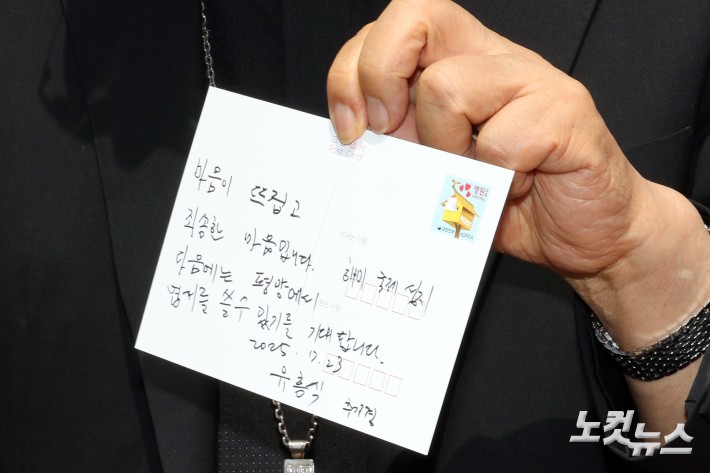 마음이 뜨겁고
죄송한 마음입니다.
다음에는 평양에서
엽서를 쓸 수 있기를 기대합니다.
2025. 7. 23
유흥식 추기경
해미 국제 성지
영원
KOREA
노컷뉴스